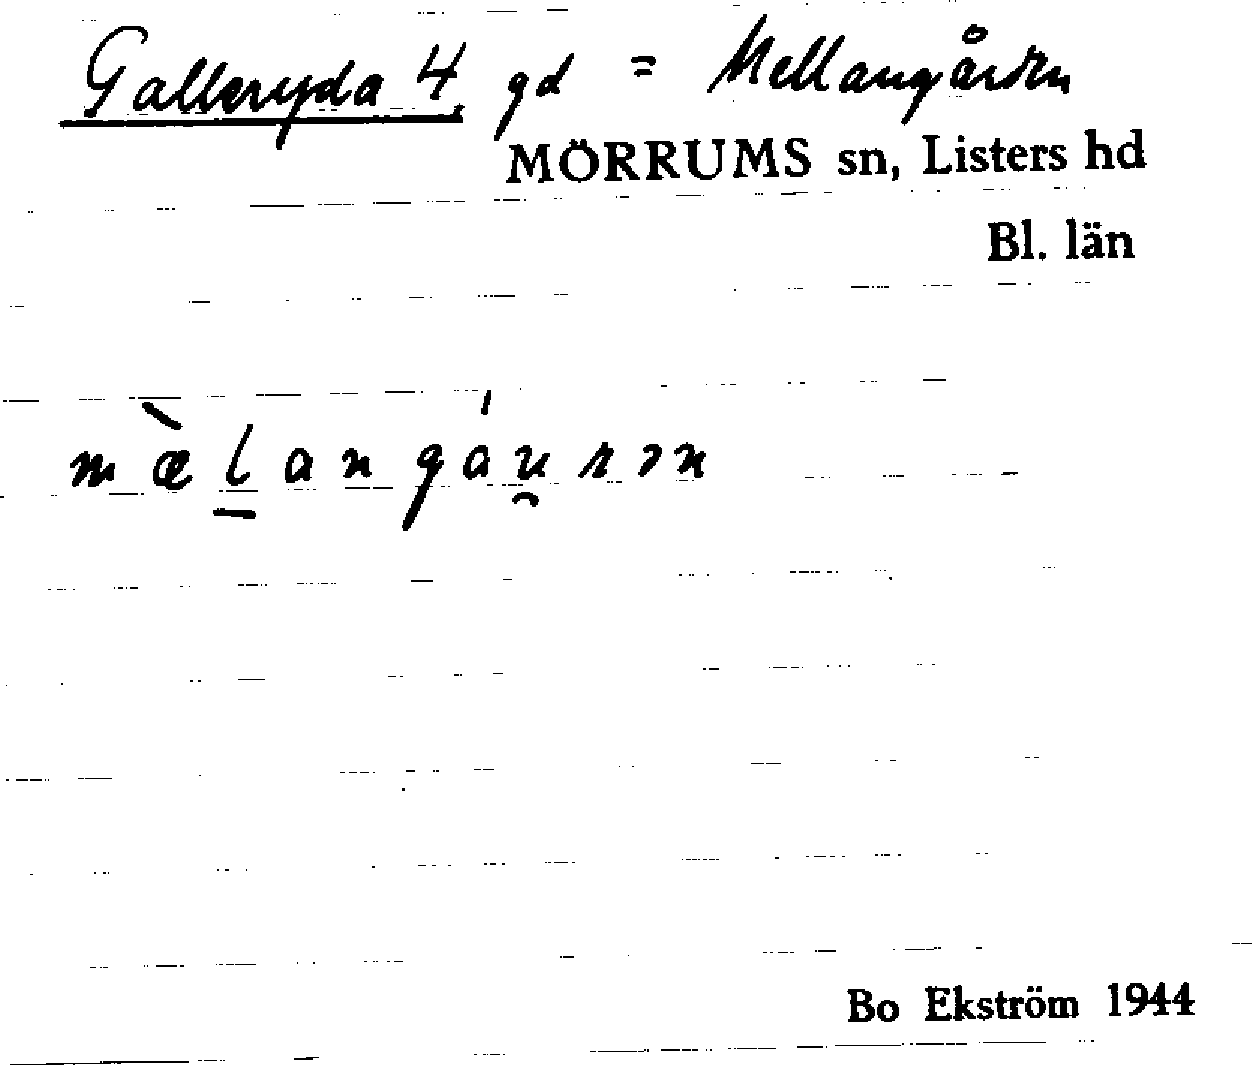 Galleryda 4, gd = Mellangården
MÖRRUMS sn, Listers hd
Bl. län
mæ̀l̲angáu̯rən
Bo Ekström 1944